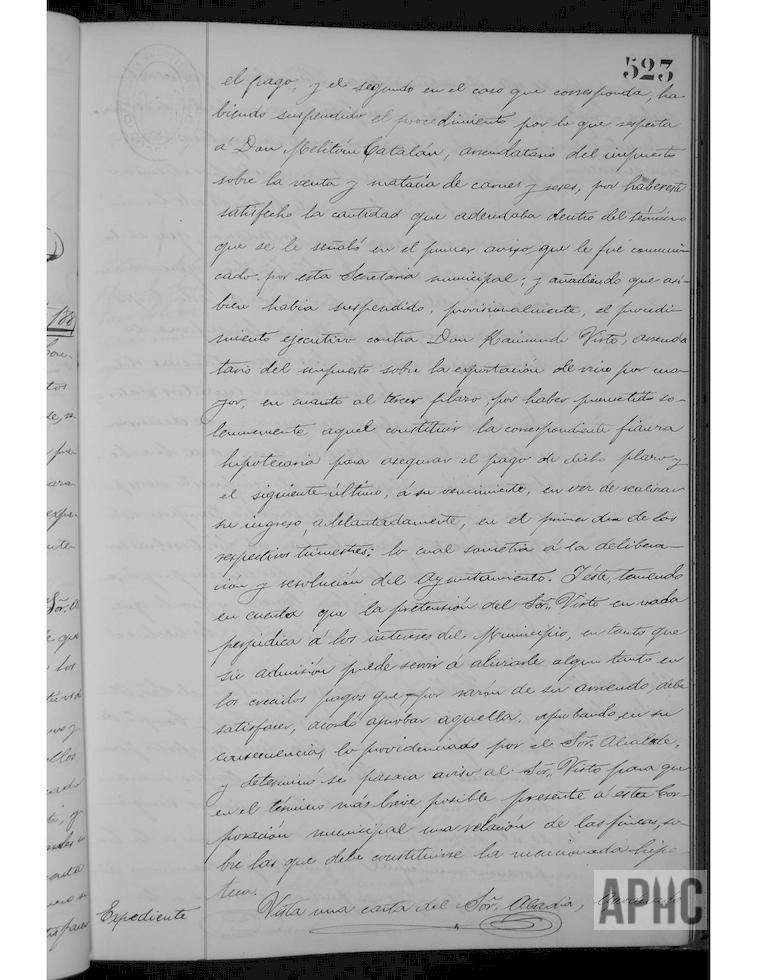 523
el pago, y el segundo en el caso que corresponda, ha
biendo suspendido el procedimiento por lo que respecta
á Don Melitón Catalán, arrendatario del impuesto
sobre la venta y matacía de carnes y reses, por haber este
satisfecho la cantidad que adeudaba dentro del término
que se le señaló en el primer aviso que le fué comuni-
cado por esta Secretaria municipal; y añadiendo que asi-
bien habia suspendido, provisionalmente, el procedi-
miento ejecutivo contra Don Raimundo Visto, arrenda
tario del impuesto sobre la exportación de vino por ma-
yor, en cuanto al tercer plazo, por haber prometido so-
lemnemente aquel constituir la correspondiente fianza
hipotecaria para asegurar el pago de dicho plazo y
el siguiente último, á su vencimiento, en vez de realizar
su ingreso, adelantadamente, en el primer dia de los
respectivos trimestres; lo cual sometia á la delibera-
ción y resolución del Ayuntamiento. Y éste, teniendo
en cuenta que la pretensión del Sor. Visto en nada
perjudica á los intereses del Municipio, en tanto que
su admisión puede servir á aliviarle algun tanto en
los crecidos pagos que, por razón de su arriendo, debe
satisfacer, acordó aprobar aquella, aprobando, en su
consecuencia, lo providenciado por el Sor. Alcalde,
y determinó se pasara aviso al Sor. Visto para que
en el término más breve posible presente á esta Cor-
poración municipal una relación de las fincas, so-
bre las que debe constituirse la mencionada hipo-
teca.
Expediente
Vista una carta del Sor. Abadia,
APHC